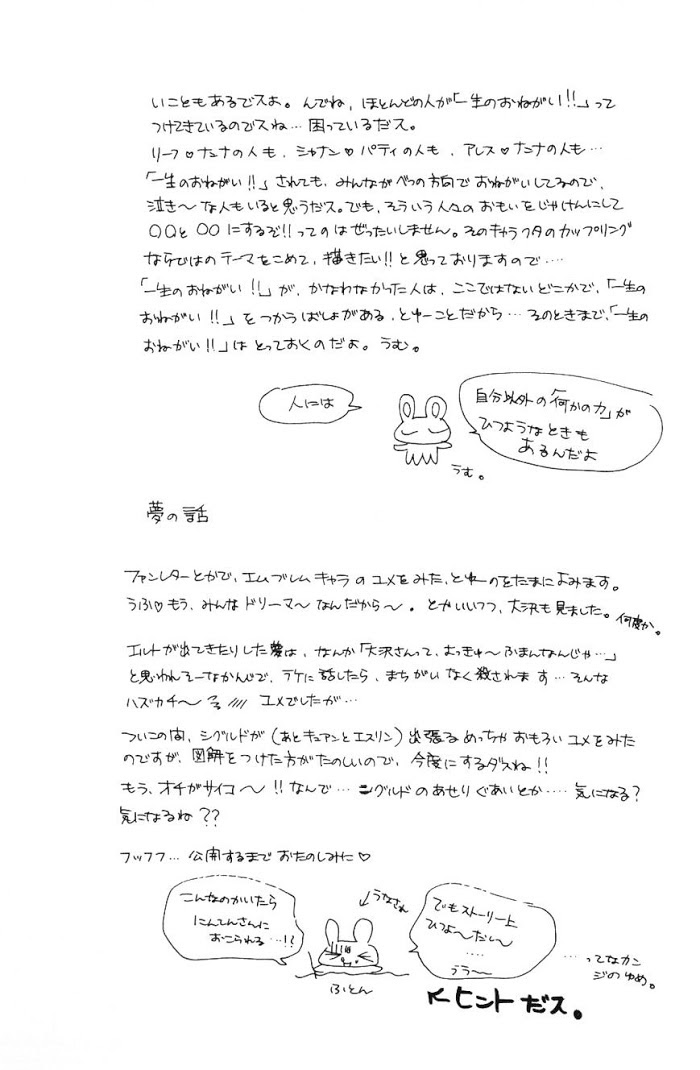 いこともあるでスよ。んでね、ほとんどの人が「一生のおねがい!!」って
つけてきているのでスね…困っているだス。
リーフ♡ナンナの人も、シャナン♡パティの人も、アレス♡ナンナの人も…
「一生のおねがい!!」されても、みんながべつの方向でおねがいしてるので、
泣き〜な人もいると思うだス。でも、そういう人々のおもいをじゃけんにして
〇〇と〇〇にするぞ!!ってのはぜったいしません。そのキャラクタのカップリング
ならではのテーマをこめて、描きたい!!と思っておりますので…‥
「一生のおねがい!!」が、かなわなかった人は、ここではないどこかで、「一生の
おねがい!!」をつかうばしょがある、とゆーことだから…そのときまで、「一生の
おねがい!!」はとっておくのだよ。うむ。
人には
自分以外の「何かの力」が
ひつようなときも
あるんだよ
うむ。
夢の話
ファンレターとかで、エムブレムキャラのユメをみた、とゆーのをたまによみます。
うふ♡もう、みんなドリーマ〜なんだから〜。とかいいつつ、大沢も見ました。何度か。
エルトが出てきたりした夢は、なんか「大沢さんって、よっきゅ〜ふまんなんじゃ…」
と思われそーなかんじで、ラケに話したら、まちがいなく殺されます…そんな
ハズカチ〜 ユメでしたが…
ついこの間、シグルドが(あとキュアンとエスリン)出張るめっちゃおもろいユメをみた
のですが、図解をつけた方がたのしいので、今度にするダスね!!
もう、オチがサイコ〜!!なんで…シグルドのあせりぐあいとか…‥気になる?
気になるね??
フッフフ…公開するまでおたのしみに♡
こんなのかいたら
にんてんさんに
おこられる…!?
うなされ
ふとん
でもストーリー上
ひつよ〜だし〜
‥‥
うう〜
…‥ってなカン
ジのゆめ。
ヒントだス。